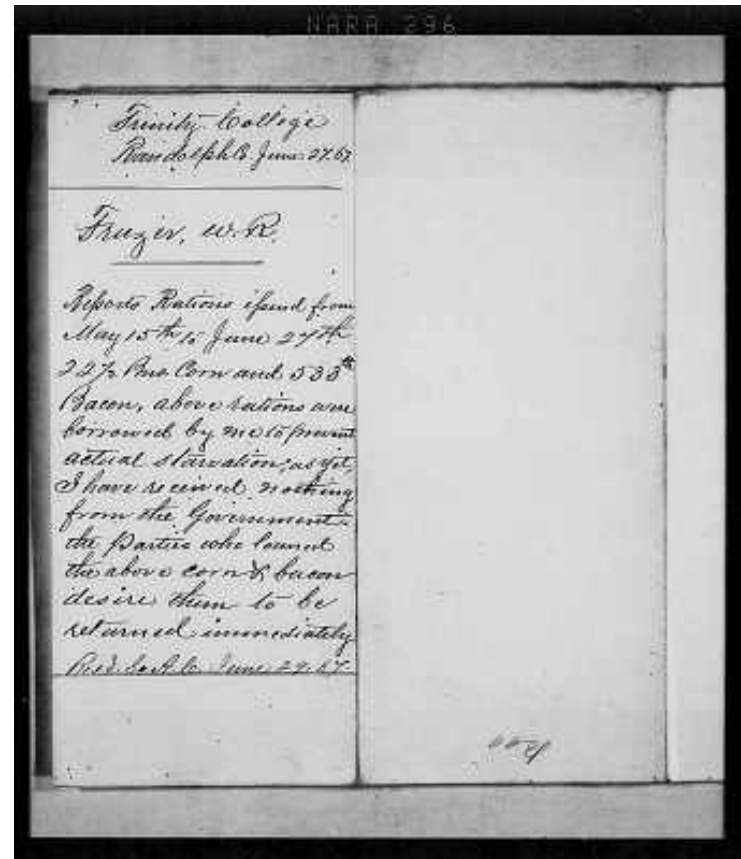 NARA 296
Trinity College
Randolph Co. June 27. 67
Frazier, W. R.
Reports Rations issued from
May 15th to June 27th
22½ Bus Corn and 533 lb
Bacon, above rations were
borrowed by me to prevent
actual starvation; as yet,
I have received nothing
from the Government.
the Parties who loaned
the above corn & bacon
desire them to be
returned immediately
June 29. 67.